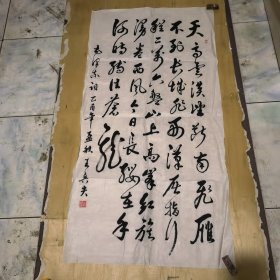 天高云淡望断南飞雁
不到长城非好汉屈指行
程二万六盘山上高峰红旗
漫卷西风今日长缨在手
何时缚住苍龙
毛泽东词 酉年孟秋王